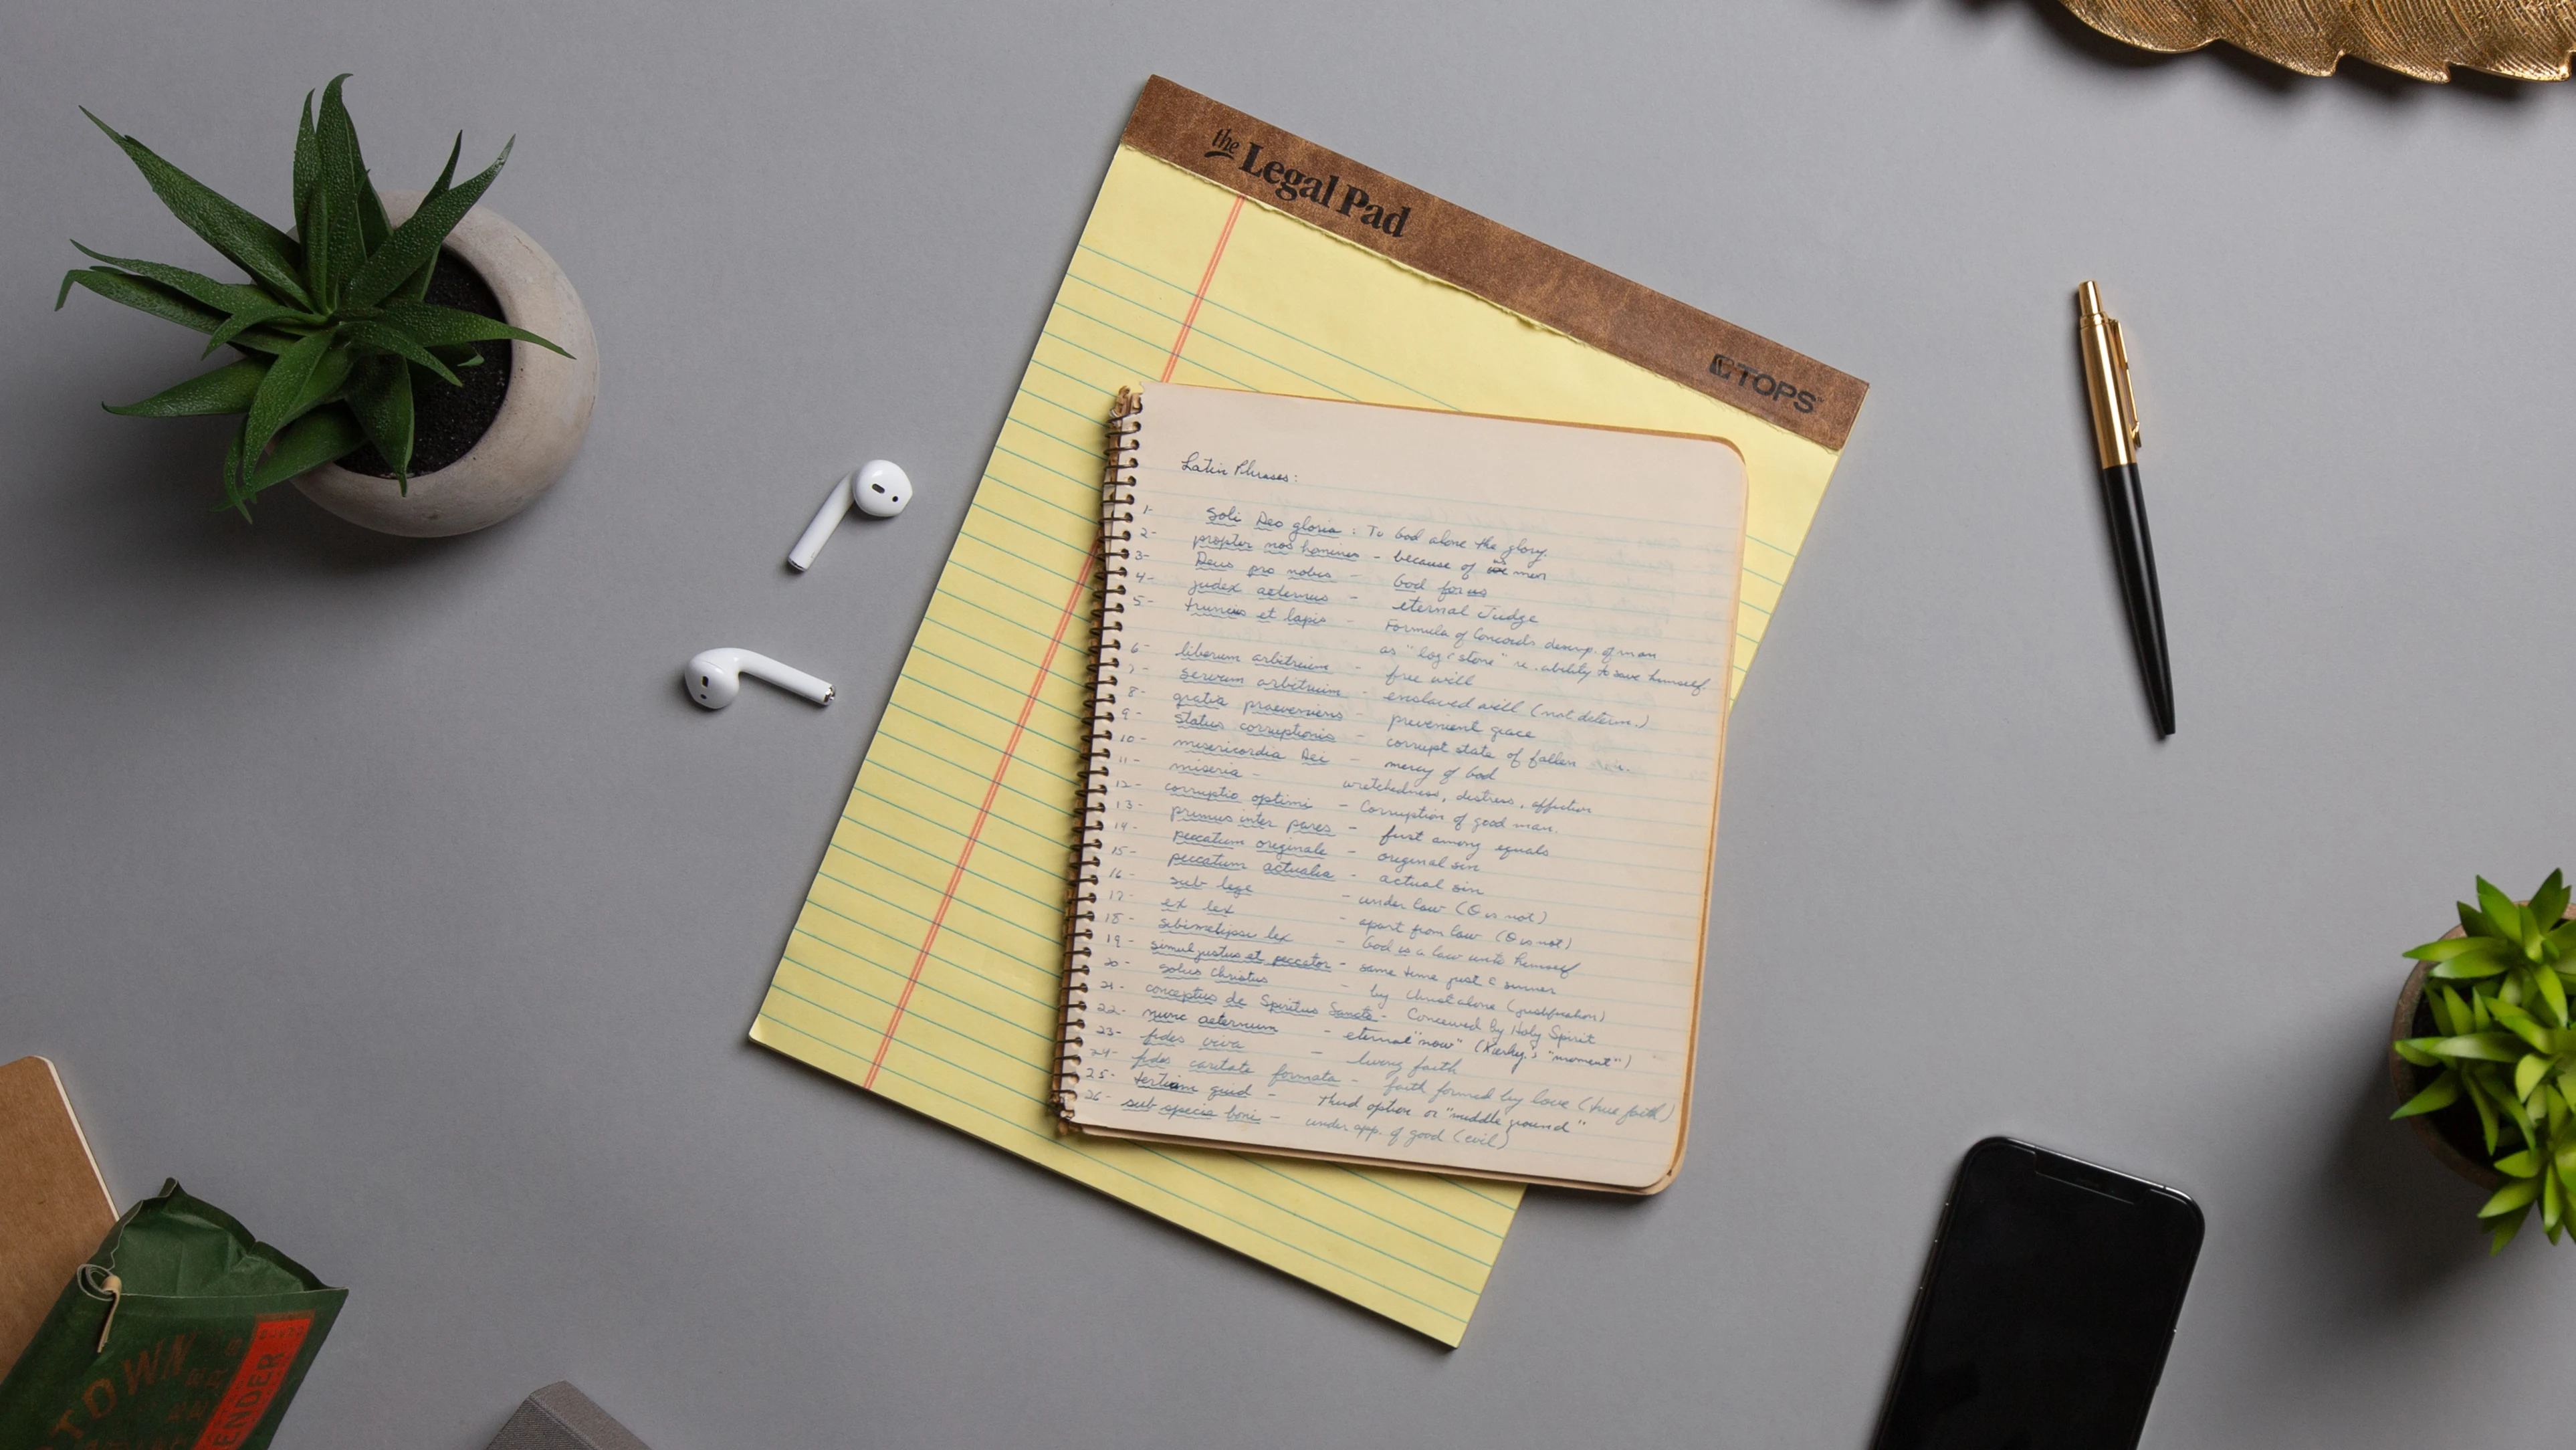 the Legal Pad
TOPS
Latin Phrases:
1- Soli Deo gloria : To God alone the glory.
2- propter nos homines - because of us men
3- Deus pro nobis - God for us
4- judex aeternus - eternal Judge
5- truncus et lapis - Formula of Concords descrip. of man
as "log & stone" re. ability to save himself.
6- liberum arbitrium - free will
7- servum arbitrium - enslaved will (not determ.)
8- gratia praeveniens - prevenient grace
9- status corruptionis - corrupt state of fallen
10- misericordia Dei - mercy of God
11- miseria - wretchedness, distress, affliction
12- corruptio optimi - Corruption of good man.
13- primus inter pares - first among equals
14- peccatum originale - original sin
15- peccatum actualia - actual sin
16- sub lege - under law (Θ is not)
17- ex lex - apart from law (Θ is not)
18- sibimetipsi lex - God is a law unto himself
19- simul justus et peccator - same time just & sinner
20- solus Christus - by Christ alone (justification)
21- conceptus de Spiritus Sancto - Conceived by Holy Spirit
22- nunc aeternum - eternal "now" (Kierkg.'s "moment")
23- fides viva - living faith
24- fides caritate formata - faith formed by love (true faith)
25- tertium quid - Third option or "middle ground"
26- sub specia boni - under app. of good (evil)
TOWN
ENDER